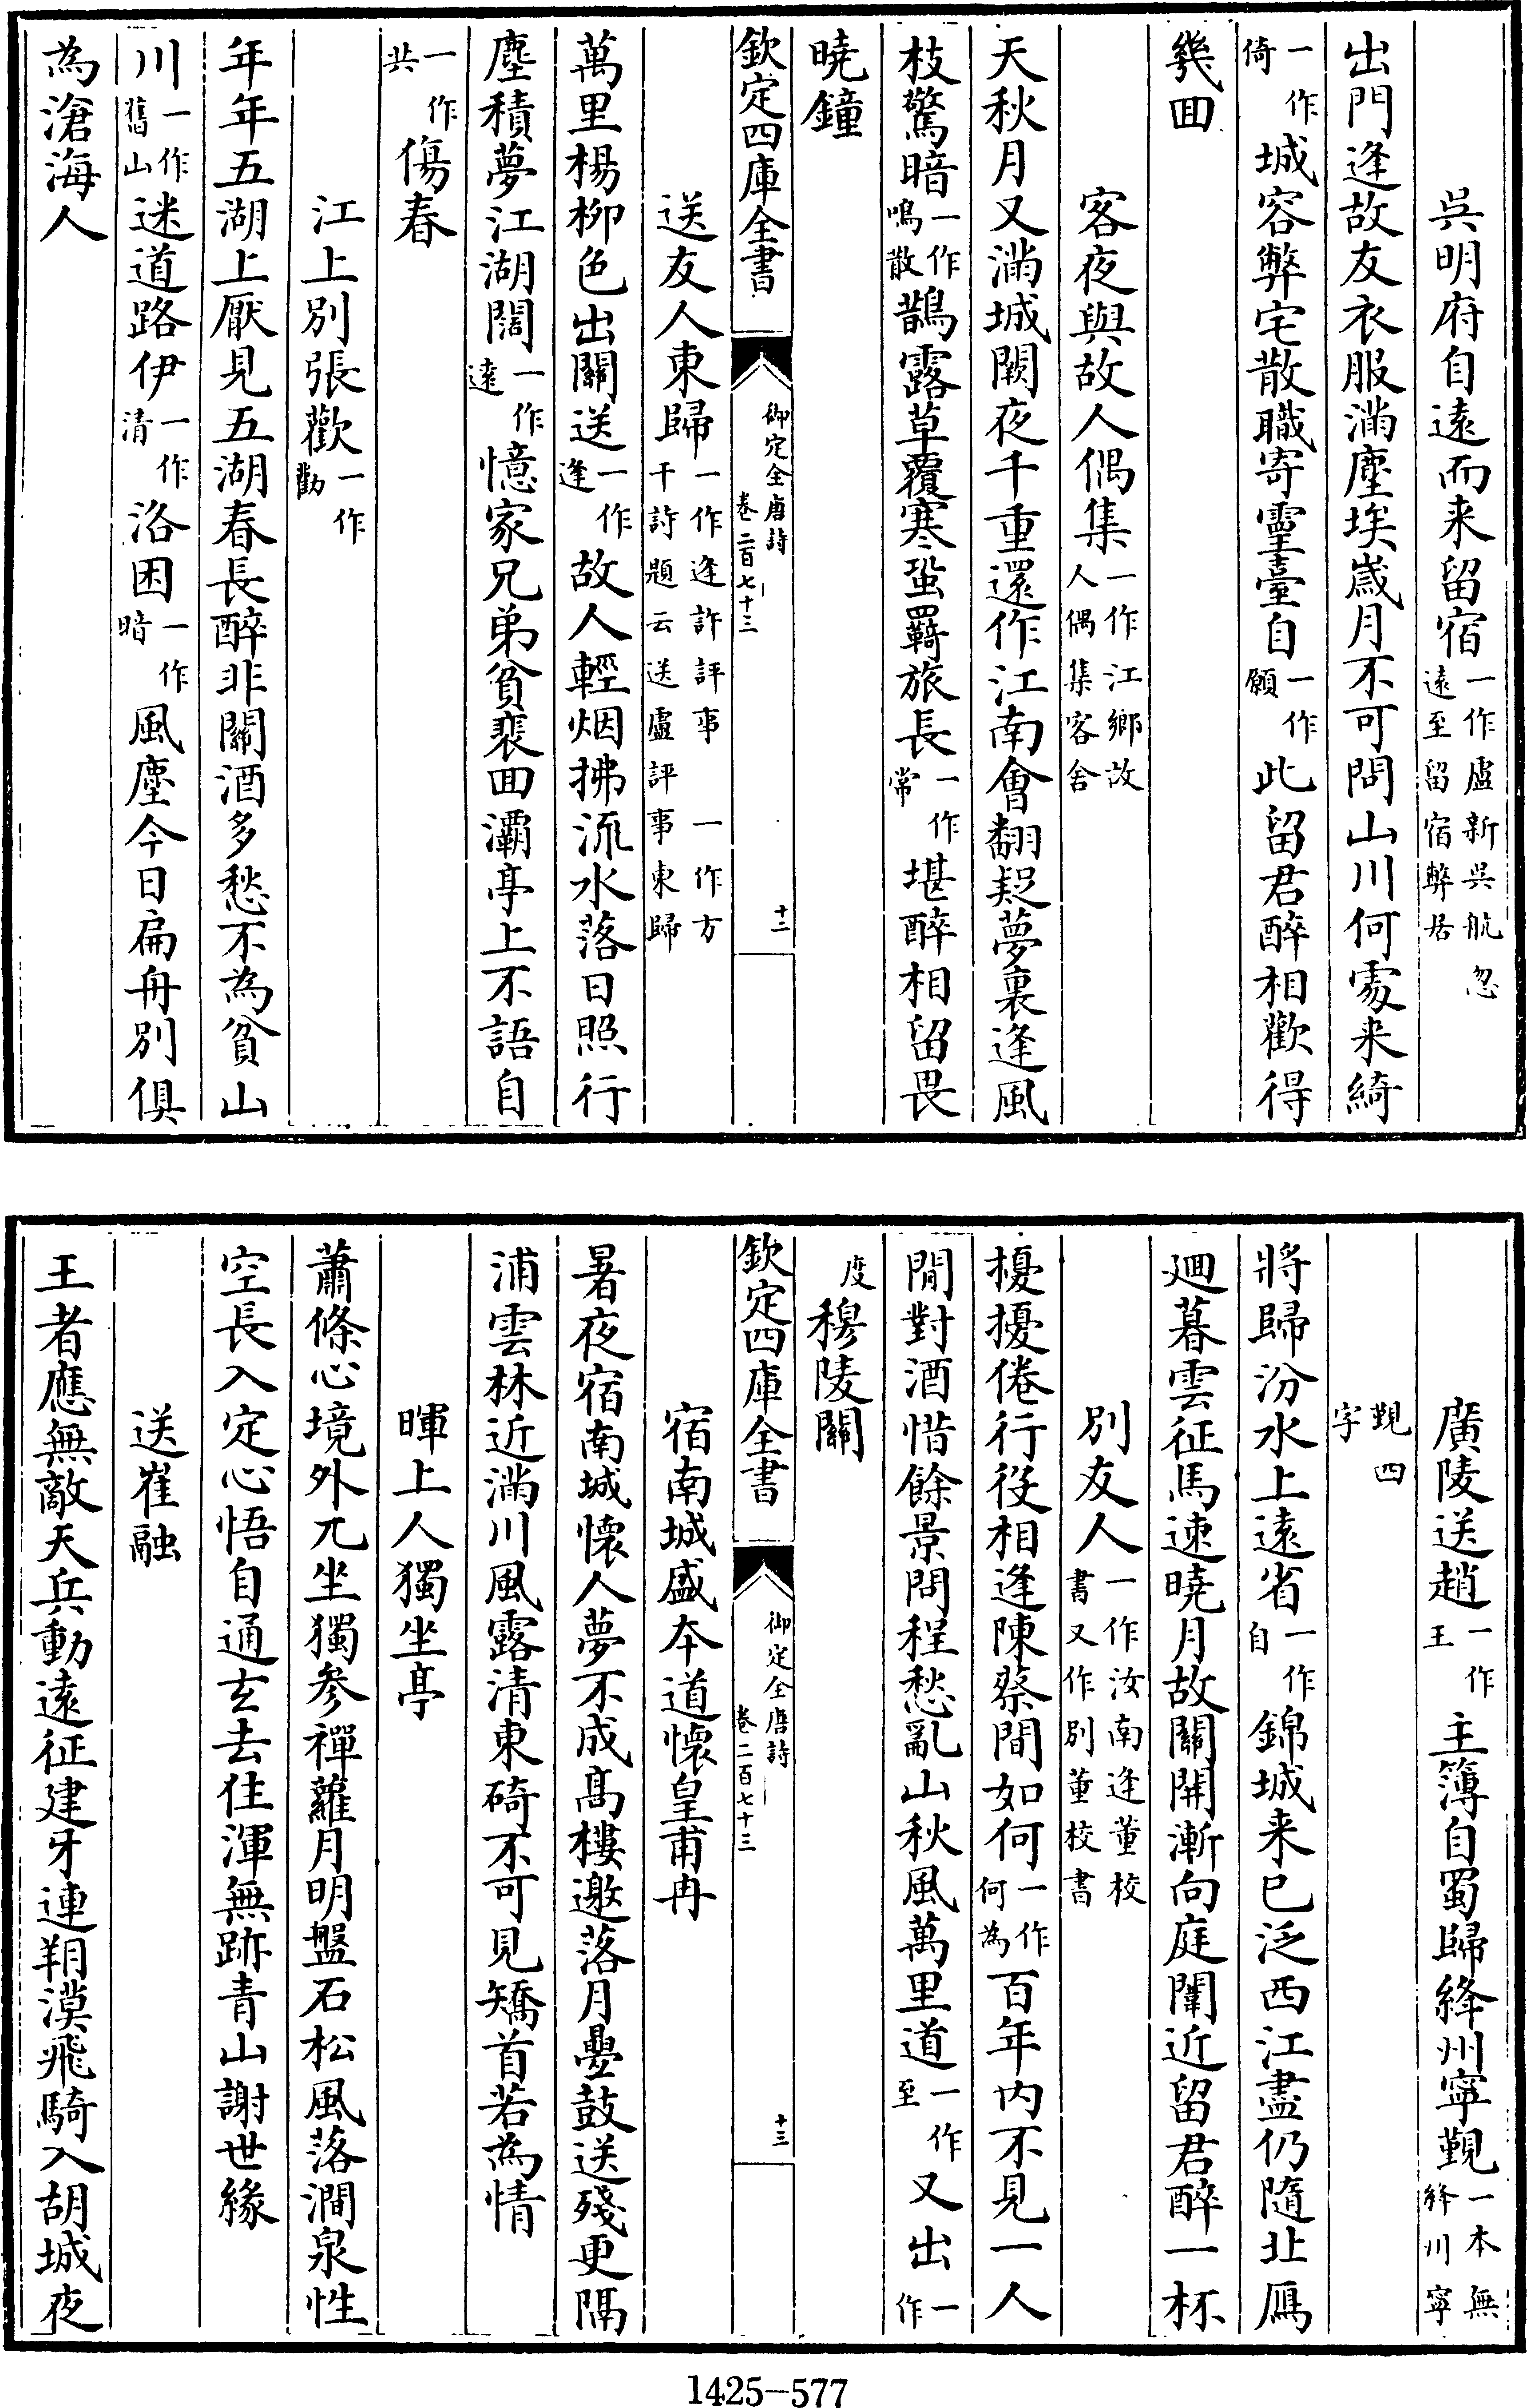 吳明府自遠而来留宿一作盧新吳航忽遠至留宿弊居
出門逢故友衣服滿塵埃歲月不可問山川何處来綺
一作倚城容弊宅散職寄靈臺自一作願此留君醉相歡得
幾回
客夜與故人偶集一作江鄉故人偶集客舍
天秋月又滿城闕夜千重還作江南會翻疑夢裏逢風
枝驚暗一作鳴散鵲露草覆寒蛩羇旅長一作常堪醉相留畏
曉鐘
欽定四庫全書
御定全唐詩
卷二百七十三
十二
送友人東歸一作逢許評事一作方干詩題云送盧評事東歸
萬里楊柳色出關送一作逢故人輕烟拂流水落日照行
塵積夢江湖闊一作遠憶家兄弟貧裴回灞亭上不語自
一作共傷春
江上別張歡一作勸
年年五湖上厭見五湖春長醉非關酒多愁不為貧山
川一作舊山迷道路伊一作清洛困一作暗風塵今日扁舟別俱
為滄海人
廣陵送趙一作王主簿自蜀歸絳州寧覲一本無絳川寧
覲四字
將歸汾水上遠省一作自錦城来已泛西江盡仍隨北鴈
廻暮雲征馬速曉月故關開漸向庭闈近留君醉一杯
別友人一作汝南逢董校書又作別董校書
擾擾倦行役相逢陳蔡間如何一作何為百年内不見一人
閒對酒惜餘景問程愁亂山秋風萬里道一作至又出一作
度穆陵關
欽定四庫全書
御定全唐詩
卷二百七十三
十三
宿南城盛夲道懷皇甫冉
暑夜宿南城懷人夢不成高樓邀落月疊鼓送殘更隔
浦雲林近滿川風露清東碕不可見矯首若為情
暉上人獨坐亭
蕭條心境外兀坐獨參禪蘿月明盤石松風落澗泉性
空長入定心悟自通玄去住渾無跡青山謝世緣
送崔融
王者應無敵天兵動遠征建牙連朔漠飛騎入胡城夜
1425-577